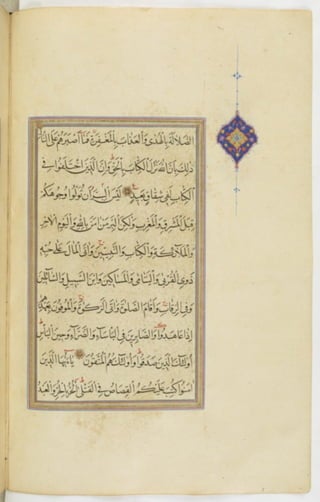 الضلالة بالهدى والعذاب بالمغفرة فما اصبرهم على النار
ذلك بان الله نزل الكتاب بالحق وان الذين اختلفوا في
الكتاب لفي شقاق بعيد ليس البر ان تولوا وجوهكم
قبل المشرق والمغرب ولكن البر من امن بالله واليوم الاخر
والملائكة والكتاب والنبيين واتى المال على حبه
ذوي القربى واليتامى والمساكين وابن السبيل والسائلين
وفي الرقاب واقام الصلوة واتى الزكوة والموفون بعهدهم
اذا عاهدوا والصابرين في الباساء والضراء وحين الباس
اولئك الذين صدقوا واولئك هم المتقون يا ايها الذين
امنوا كتب عليكم القصاص في القتلى الحر بالحر والعبد